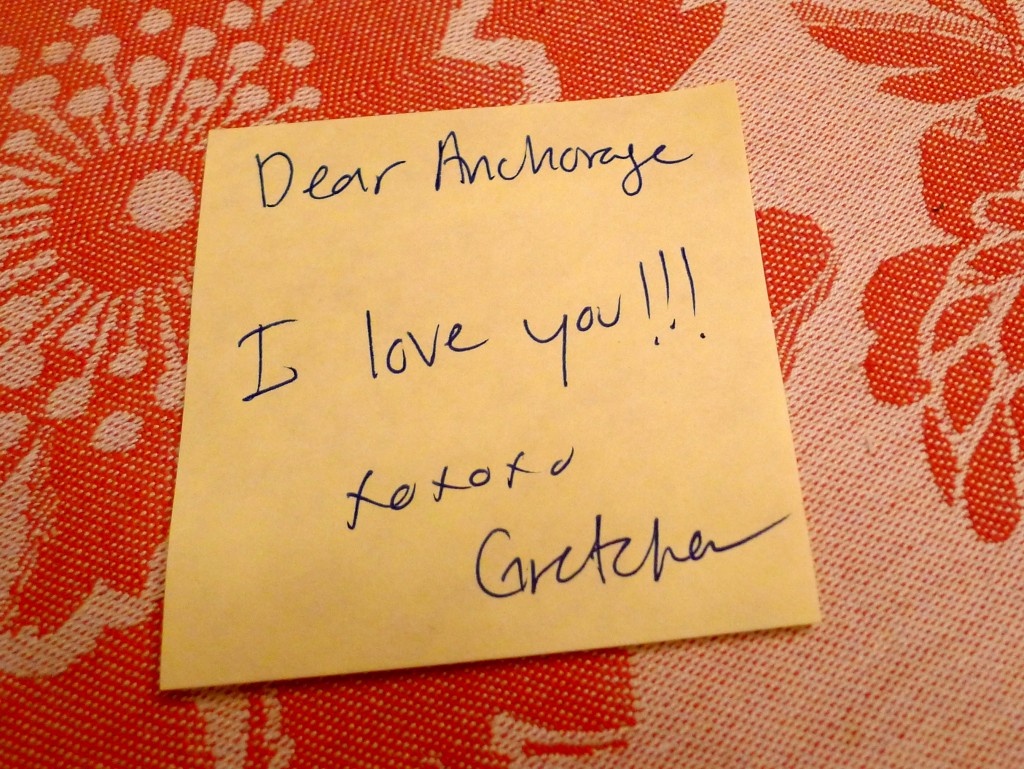 Dear Anchorage
I love you!!!
xoxoxo
Gretchen